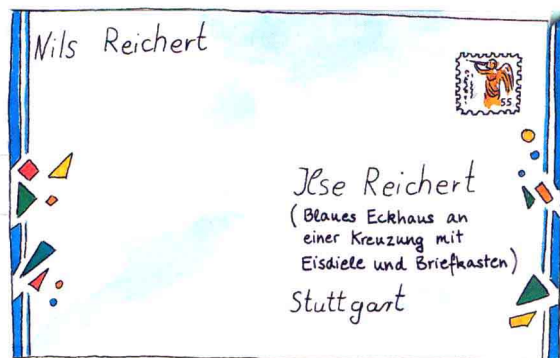 Nils Reichert
55
Ilse Reichert
(Blaues Eckhaus an
einer Kreuzung mit
Eisdiele und Briefkasten)
Stuttgart